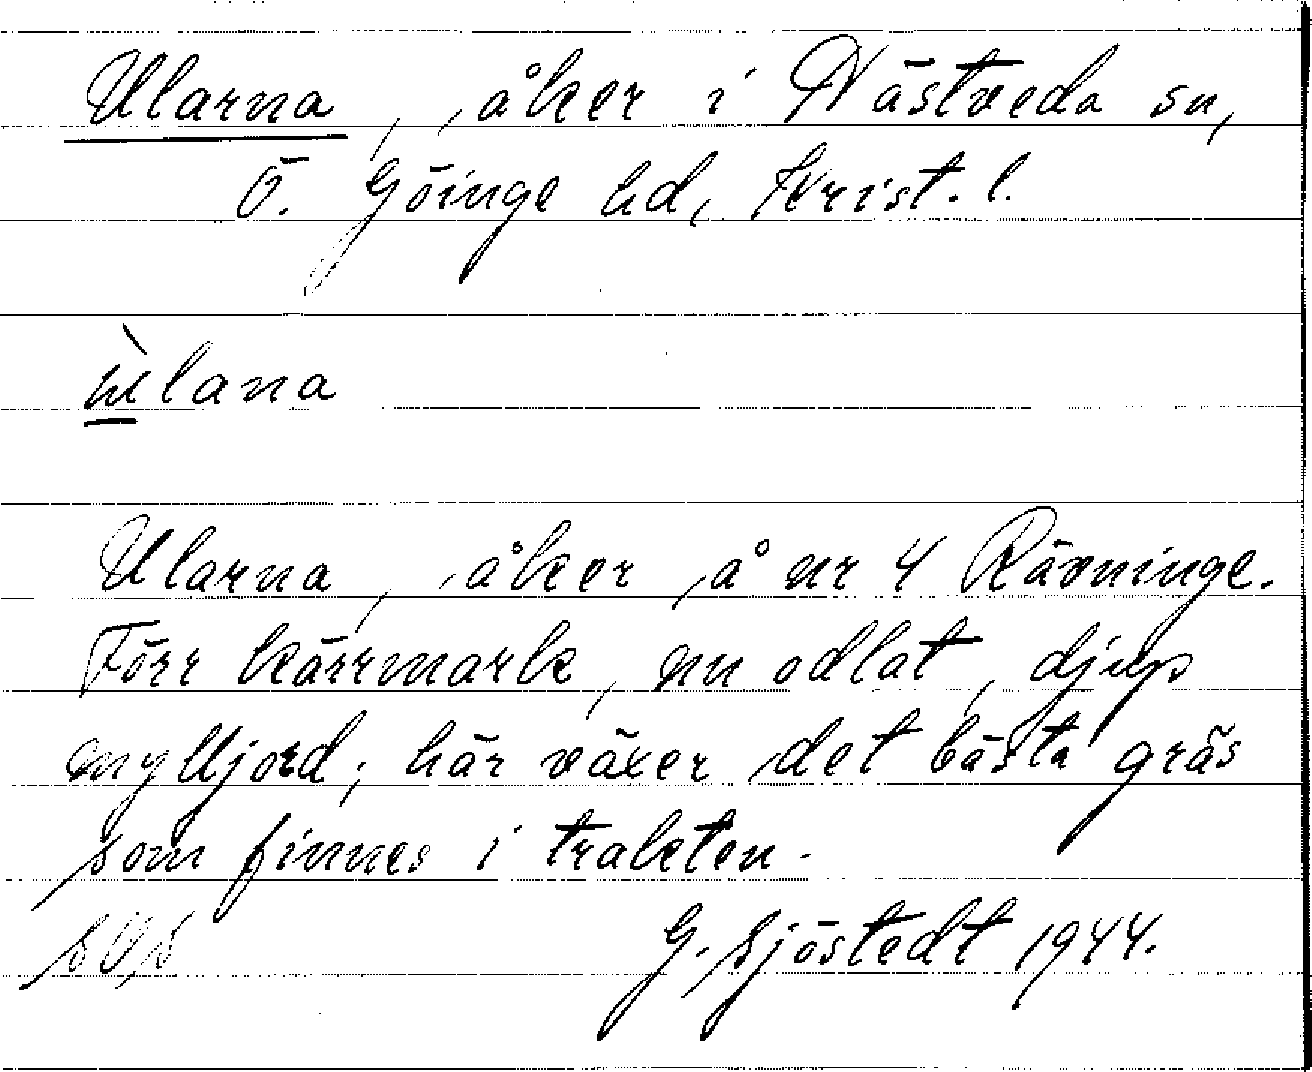 Ularna, åker i Nästveda sn,
Ö. Göinge hd, Krist. l.
ùlana
Ularna, åker å nr 4 Rävninge.
Förr kärrmark, nu odlat, djup
mylljord; här växer det bästa gräs
som finnes i trakten.
G. Sjöstedt 1944.